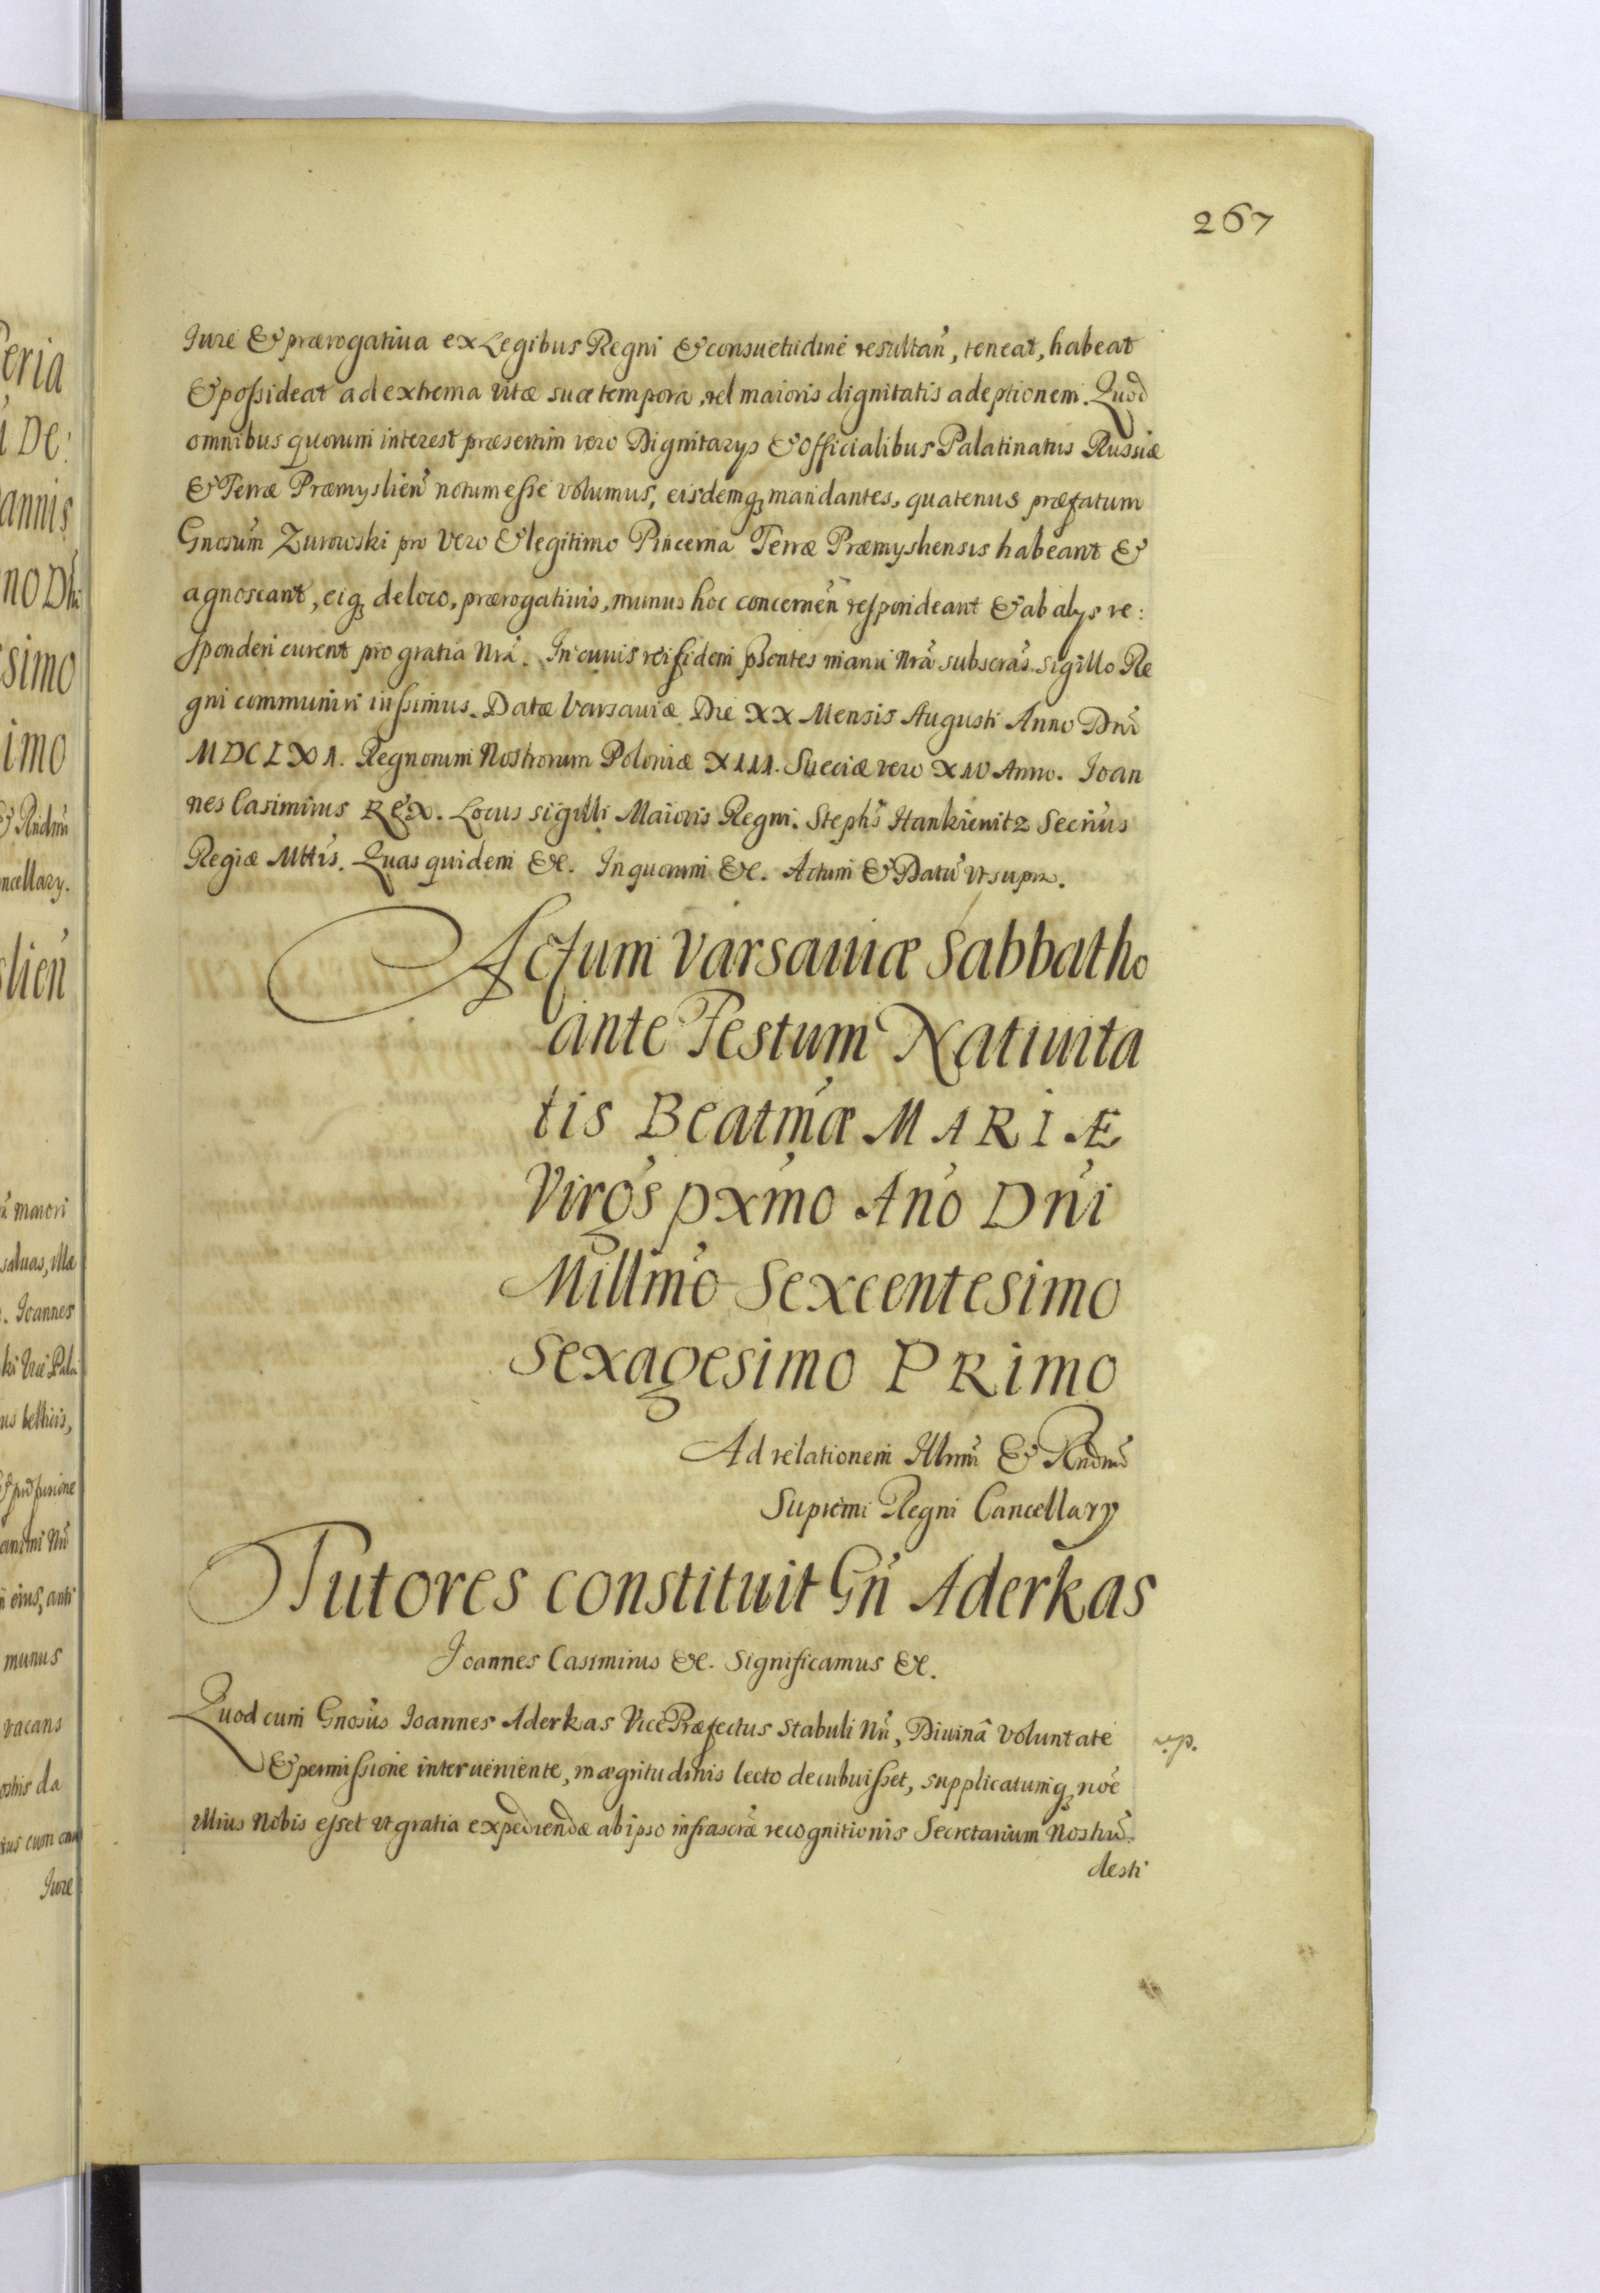 267
Jure & prærogatiua ex Legibus Regni & consuetudine resultan̄, teneat, habeat
& possideat ad extrema vitæ suæ tempora, vel maioris dignitatis adeptionem. Quod
omnibus quorum interest præsertim vero Dignitarys & Officialibus Palatinatus Russiæ
& Terræ Præmyslien̄ notum esse volumus, eisdemq̧ mandantes, quatenus præfatum
Gnosum̄ Zurowski pro vero & legitimo Pincerna Terræ Præmysliensis habeant &
agnoscant, eiq̧ de loco, prærogatiuis, munus hoc concernen̄ respondeant & ab alys re:
sponderi curent pro gratia Nrā. In cuius rei fidem p̄sentes manu Nrā subscras̄ sigillo Re
gni communiri iussimus. Datæ Varsauiæ Die XX Mensis Augusti Anno Dnī
MDCLXI. Regnorum Nostrorum Poloniæ XIII. Sueciæ vero XIV Anno. Joan
nes Casimirus REX. Locus sigilli Maioris Regni. Stephs̄ Hankiewitz Secrīus
Regiæ Mttīs. Quas quidem &c. In quorum &c. Actum & Datū vt supra.
Actum Varsauiæ Sabbatho
ante Festum Natiuita
tis Beatm̄æ MARIÆ
Virgs̄ pxm̄o Ano̅ Dnī
Millm̄o Sexcentesimo
Sexagesimo PRimo
Ad relationem Illmī & Rndmī
Supremi Regni Cancellary
Tutores constituit Gn̄ Aderkas
Joannes Casimirus &c. Significamus &c.
Quod cum Gnosūs Joannes Aderkas Vice Præfectus Stabuli Nrī, Diuinâ voluntate
& permissione interueniente, in ægritudinis lecto decubuisset, supplicatumq̧ noē
illius Nobis esset vt gratia expediendæ ab ipso infrascrǣ recognitionis Secretarium Nostrū
desti